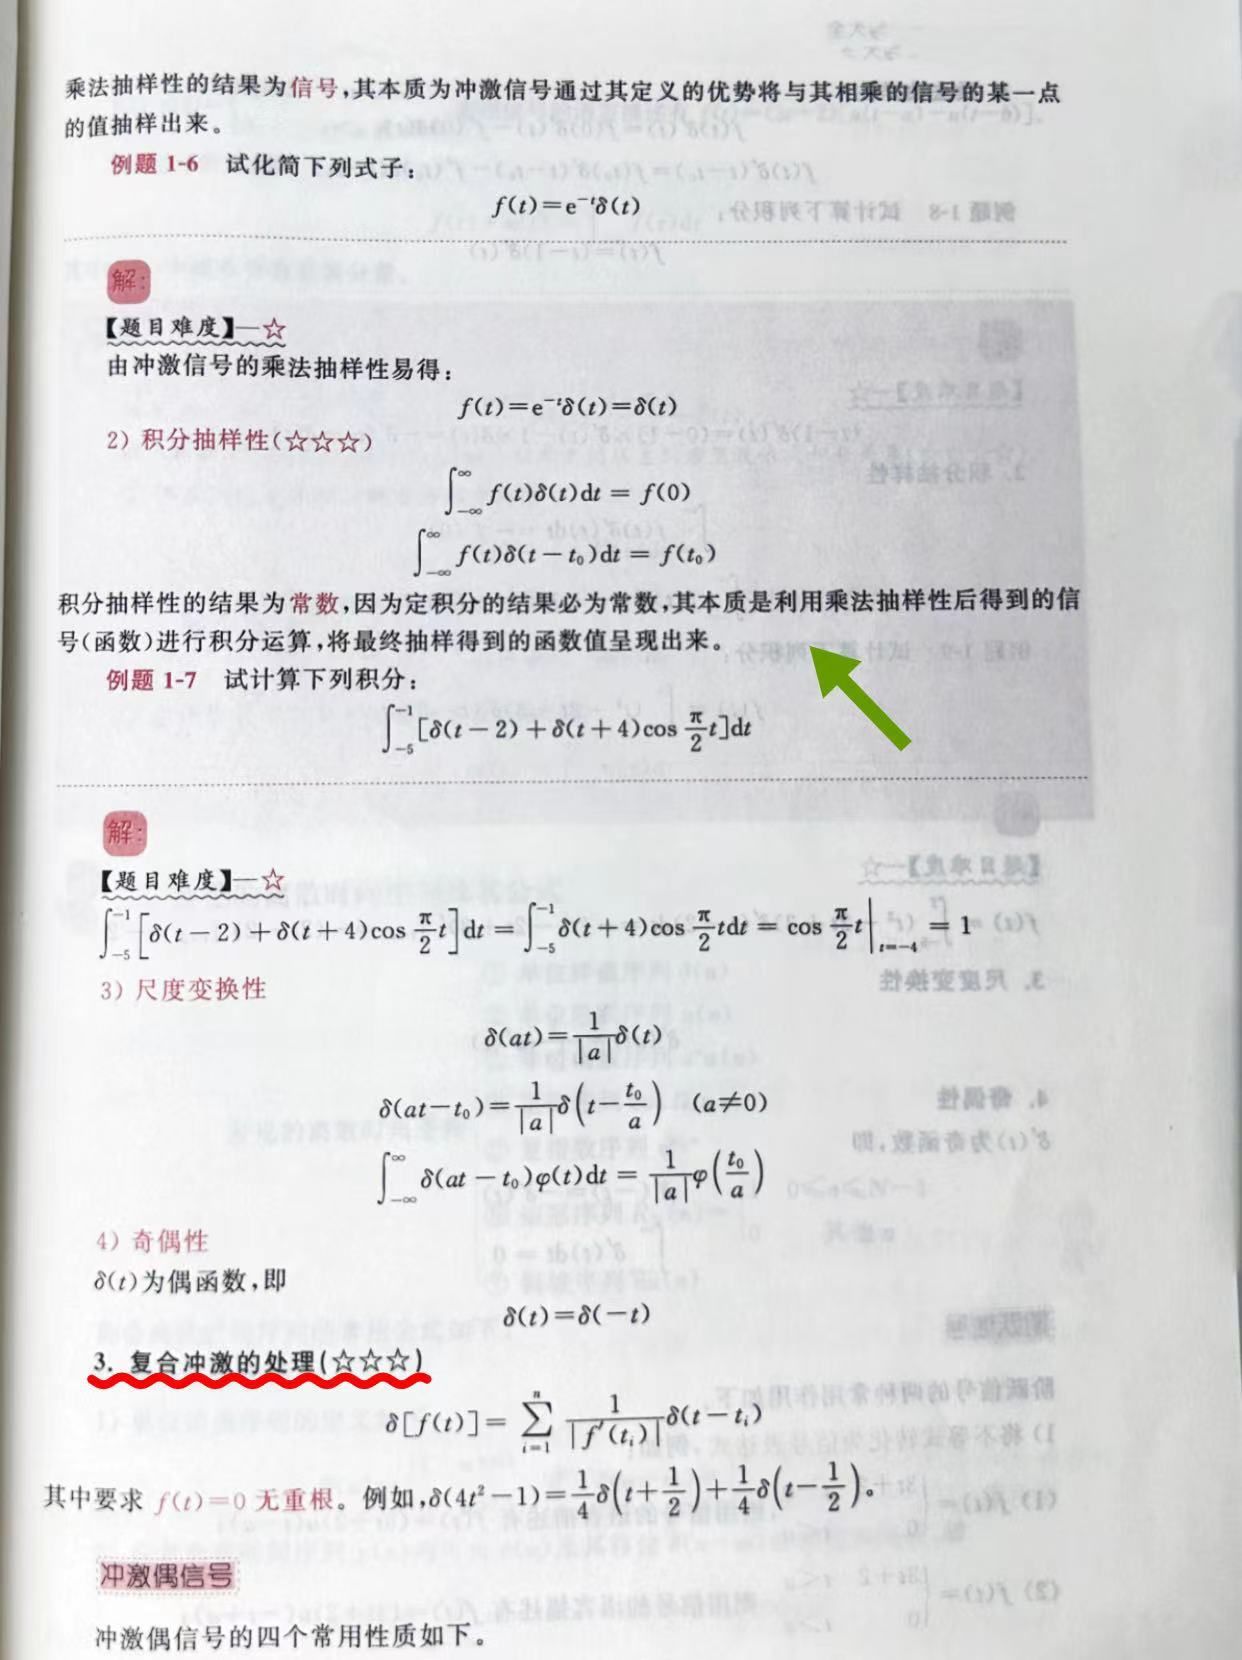 乘法抽样性的结果为信号,其本质为冲激信号通过其定义的优势将与其相乘的信号的某一点
的值抽样出来。
例题 1-6 试化简下列式子:
f(t)=e⁻ᵗδ(t)
解:
【题目难度】—☆
由冲激信号的乘法抽样性易得:
f(t)=e⁻ᵗδ(t)=δ(t)
2) 积分抽样性(☆☆☆)
∫_{-∞}^{∞} f(t)δ(t)dt = f(0)
∫_{-∞}^{∞} f(t)δ(t-t₀)dt = f(t₀)
积分抽样性的结果为常数,因为定积分的结果必为常数,其本质是利用乘法抽样性后得到的信
号(函数)进行积分运算,将最终抽样得到的函数值呈现出来。
例题 1-7 试计算下列积分:
∫_{-5}^{-1} [δ(t-2)+δ(t+4)cos π/2 t]dt
解:
【题目难度】—☆
∫_{-5}^{-1} [δ(t-2)+δ(t+4)cos π/2 t]dt = ∫_{-5}^{-1} δ(t+4)cos π/2 tdt = cos π/2 t|_{t=-4} = 1
3) 尺度变换性
δ(at)=1/|a| δ(t)
δ(at-t₀)=1/|a| δ(t-t₀/a) (a≠0)
∫_{-∞}^{∞} δ(at-t₀)φ(t)dt = 1/|a| φ(t₀/a)
4) 奇偶性
δ(t)为偶函数,即
δ(t)=δ(-t)
3. 复合冲激的处理(☆☆☆)
δ[f(t)]= ∑_{i=1}^{n} 1/|f′(tᵢ)| δ(t-tᵢ)
其中要求 f(t)=0 无重根。例如,δ(4t²-1)=1/4 δ(t+1/2)+1/4 δ(t-1/2)。
冲激偶信号
冲激偶信号的四个常用性质如下。